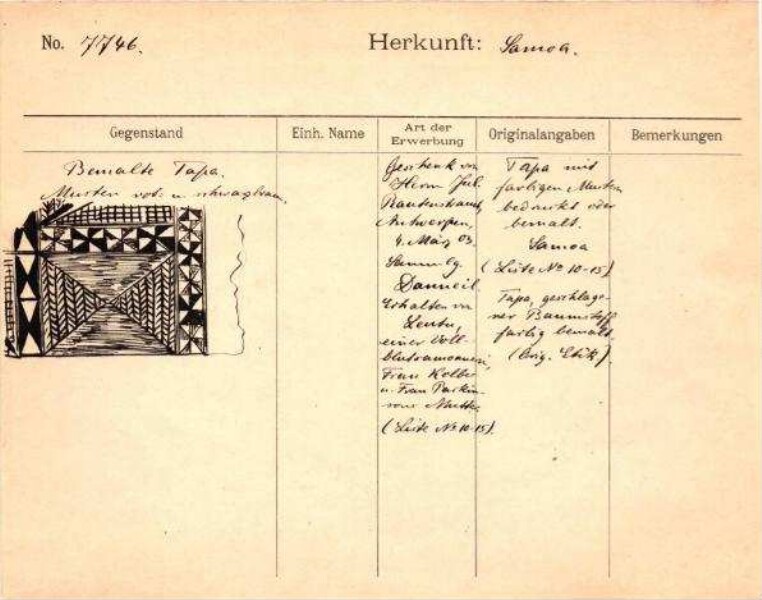 No. 7746.
Herkunft: Samoa.
Gegenstand
Einh. Name
Art der
Erwerbung
Originalangaben
Bemerkungen
Bemalte Tapa.
Muster rot u. schwarzbraun.
Geschenk von
Herrn Jul.
Rautenstrauch,
Antwerpen,
4. März 03.
Sammlg.
Danneil.
Erhalten von
einer Voll-
blutsamoanerin,
Frau Kolbe
u. Frau Parkin-
sons Mutter.
(Liste No 10-15).
Tapa mit
farbigen Mustern
bedruckt oder
bemalt.
Samoa
(Liste No 10-15)
Tapa, geschlage-
ner Baumstoff
farbig bemalt.
(Orig. Etik.).